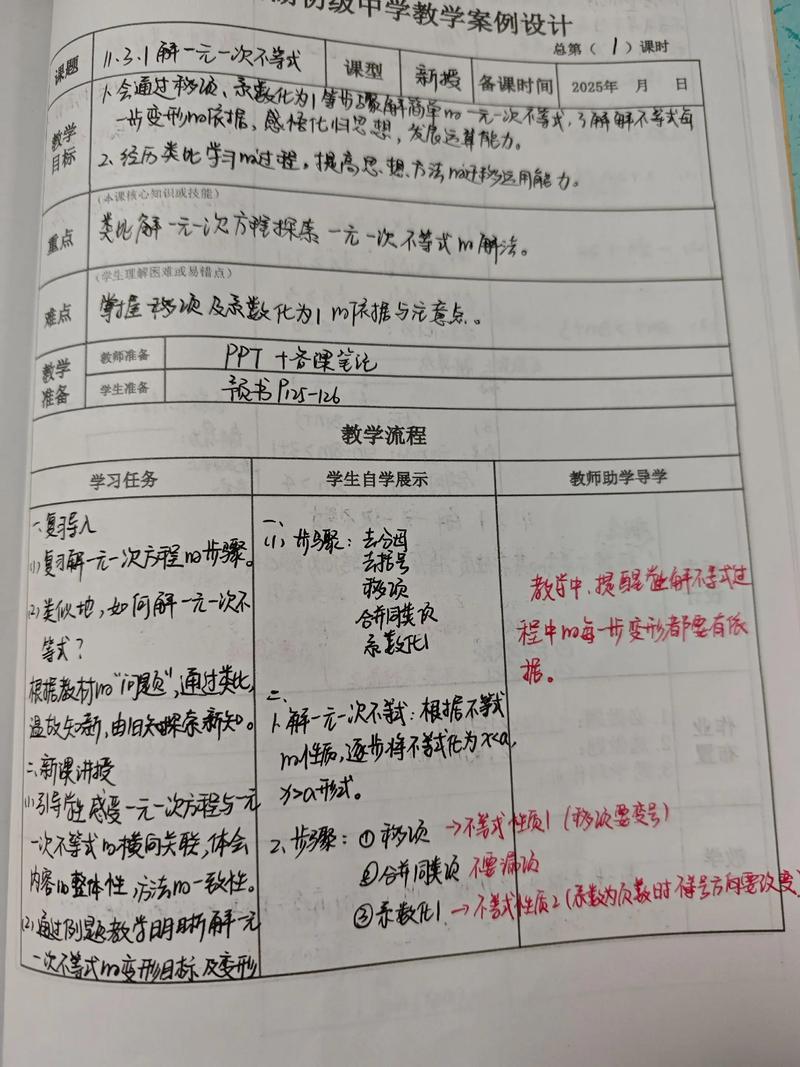 初级中学教学案例设计
总第（ 1 ）课时
课题 11.3.1解一元一次不等式 课型 新授 备课时间 2025年 月 日
教学目标
1. 会通过移项、系数化为1等步骤解简单的一元一次不等式，了解解不等式每
一步变形的依据，感悟化归思想，发展运算能力。
2. 经历类比学习的过程，提高思想、方法的迁移运用能力。
重点
（本课核心知识或技能）
类比解一元一次方程探索一元一次不等式的解法。
难点
（学生理解困难或易错点）
掌握移项及系数化为1的依据与注意点。
教学准备
教师准备 PPT+备课笔记
学生准备 预书P125-126
教学流程
学习任务 学生自学展示 教师助学导学
一、复习导入
(1) 复习解一元一次方程的步骤。
(2) 类似地，如何解一元一次不
等式？
根据教材的"问题"，通过类比，
温故知新，由旧知探索新知。
二、新课讲授
(1) 引导学生感受一元一次方程与一元
一次不等式的横向关联，体会
内容的整体性，方法的一致性。
(2) 通过例题教学明晰解一元
一次不等式的变形目标及变形
一、
(1) 步骤：去分母
去括号
移项
合并同类项
系数化1
二、
1. 解一元一次不等式：根据不等式
的性质，逐步将不等式化为x<a,
x>a形式。
2. 步骤：① 移项 →不等式性质1（移项要变号）
②合并同类项 不要漏项
③系数化1 →不等式性质2（系数为负数时不等号方向要改变）
教学中，提醒学生解不等式过
程中的每一步变形都要有依
据。